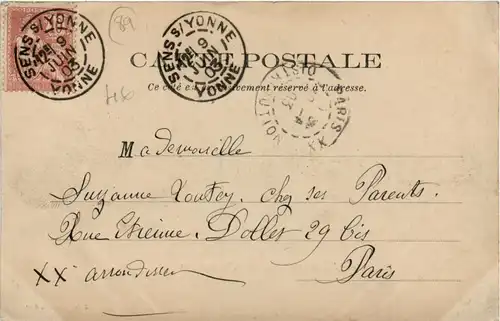 SENS S/YONNE
9
JUIN
03
YONNE
SENS S/YONNE
9
JUIN
03
YONNE
89
CARTE POSTALE
Ce côté est exclusivement réservé à l'adresse.
PARIS XX
46
Mademoiselle
Suzanne chez ses Parents.
Rue Etienne Dollet 29 bis
Paris
XX